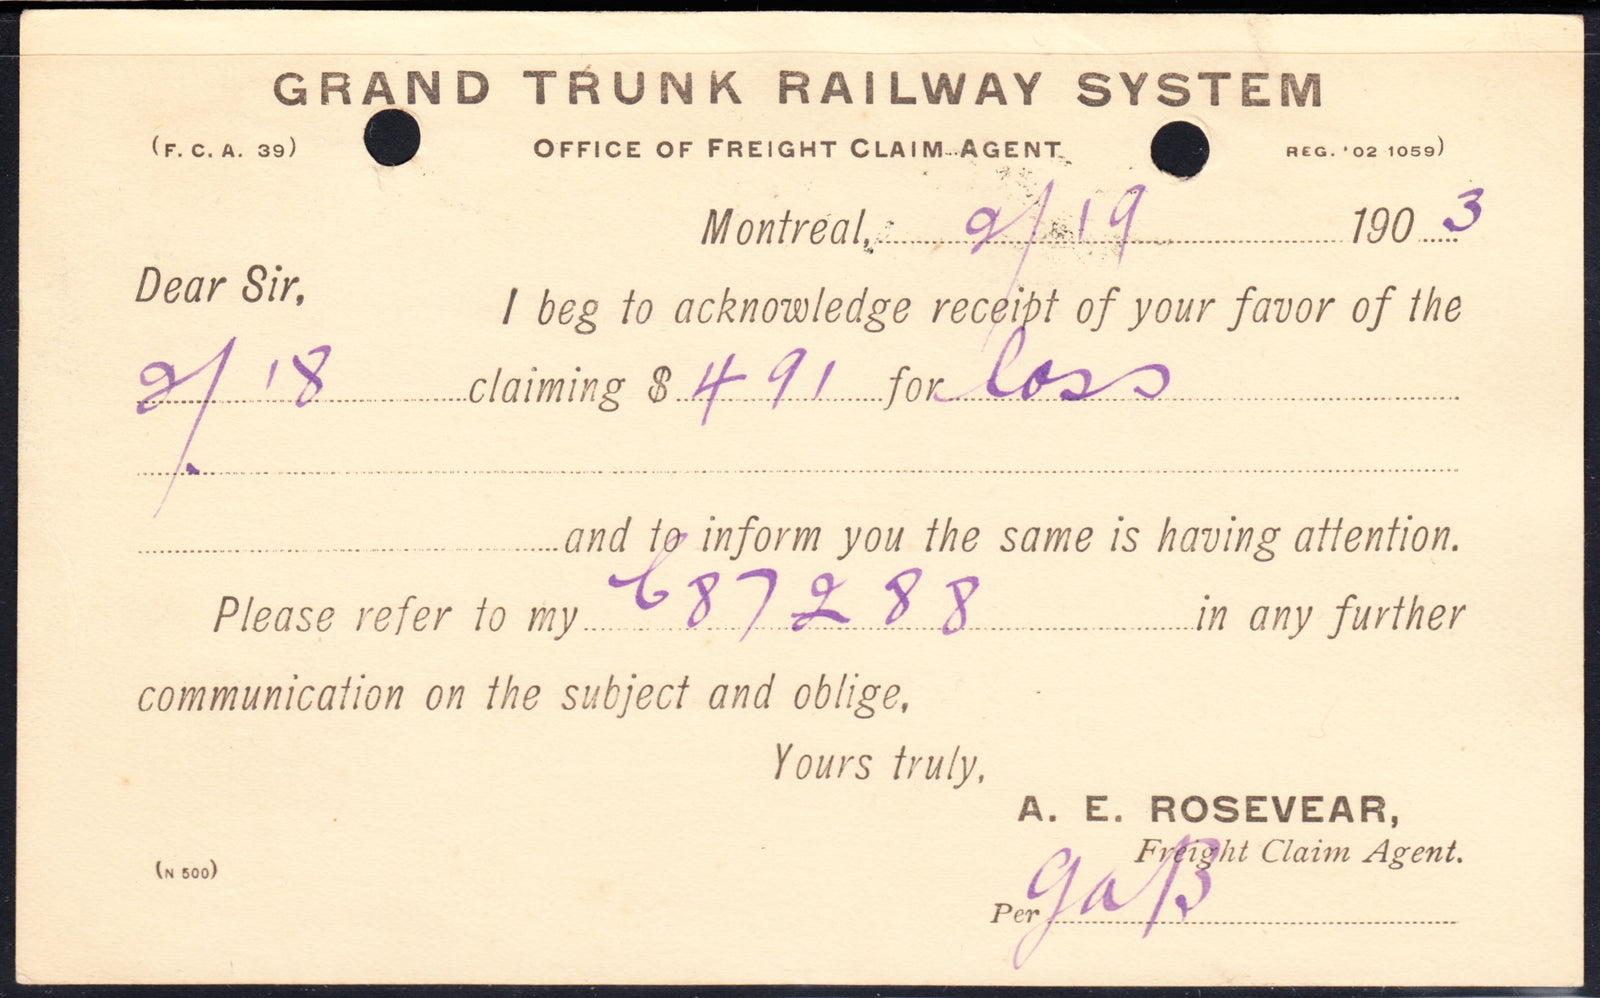 GRAND TRUNK RAILWAY SYSTEM
(F. C. A. 39) OFFICE OF FREIGHT CLAIM AGENT REG. '02 1059)
Montreal, 2/19 1903
Dear Sir,
I beg to acknowledge receipt of your favor of the
2/18 claiming $ 491 for loss
and to inform you the same is having attention.
Please refer to my 687288 in any further
communication on the subject and oblige,
Yours truly,
A. E. ROSEVEAR,
Freight Claim Agent.
(N 500)
Per GaB